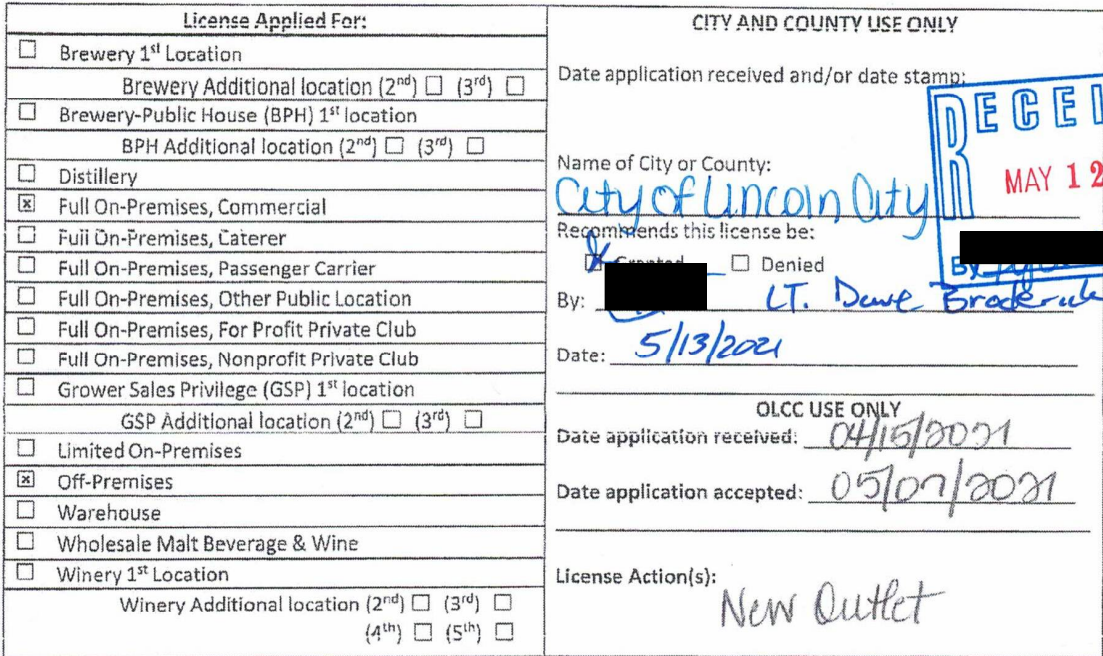 License Applied For:
☐ Brewery 1st Location
Brewery Additional location (2nd) ☐ (3rd) ☐
☐ Brewery-Public House (BPH) 1st location
BPH Additional location (2nd) ☐ (3rd) ☐
☐ Distillery
☒ Full On-Premises, Commercial
☐ Full On-Premises, Caterer
☐ Full On-Premises, Passenger Carrier
☐ Full On-Premises, Other Public Location
☐ Full On-Premises, For Profit Private Club
☐ Full On-Premises, Nonprofit Private Club
☐ Grower Sales Privilege (GSP) 1st location
GSP Additional location (2nd) ☐ (3rd) ☐
☐ Limited On-Premises
☒ Off-Premises
☐ Warehouse
☐ Wholesale Malt Beverage & Wine
☐ Winery 1st Location
Winery Additional location (2nd) ☐ (3rd) ☐
(4th) ☐ (5th) ☐
CITY AND COUNTY USE ONLY
Date application received and/or date stamp:
RECEI
MAY 12
Name of City or County:
City of Lincoln City
Recommends this license be:
☒ Granted ☐ Denied
By: LT. Dave Broderick
Date: 5/13/2021
OLCC USE ONLY
Date application received: 04/15/2021
Date application accepted: 05/07/2021
License Action(s):
New Outlet